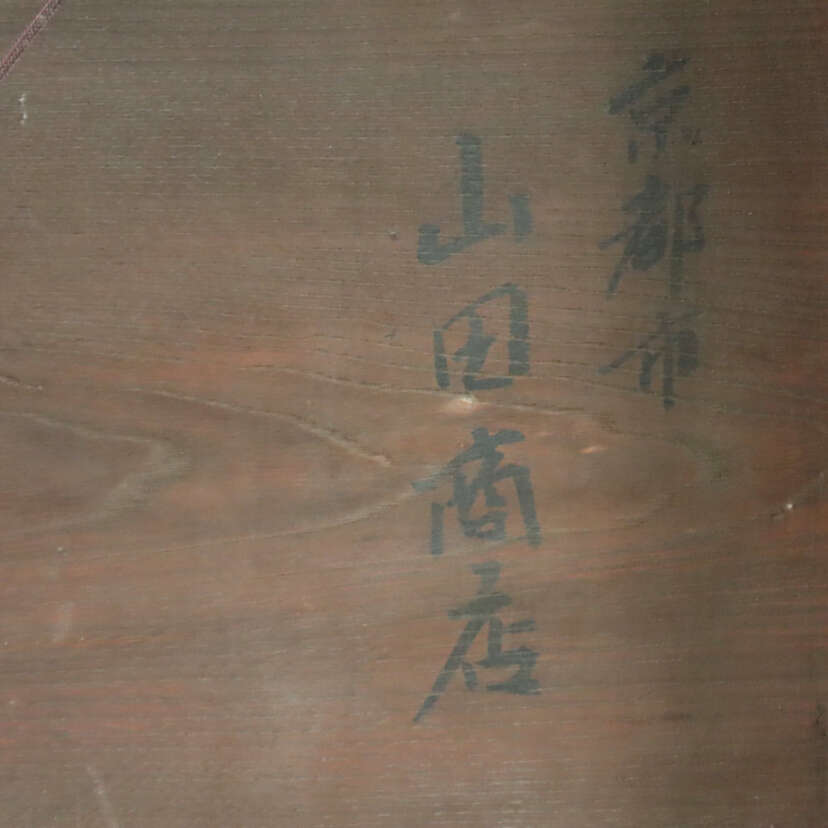 京都市
山田商店